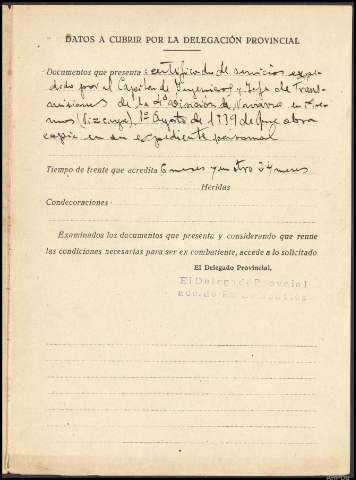 DATOS A CUBRIR POR LA DELEGACIÓN PROVINCIAL
Documentos que presenta: certificado de servicios expe-
dido por el Capitán de Ingenieros y Jefe de Trans-
misiones de la 4ª División de Navarra en
(Vizcaya) 1º Agosto de 1939 de que obra
copia en su expediente personal
Tiempo de frente que acredita 6 meses
Heridas
Condecoraciones
Examinados los documentos que presenta y considerando que reune
las condiciones necesarias para ser ex combatiente, accede a lo solicitado
El Delegado Provincial,
El Delegado Provincial